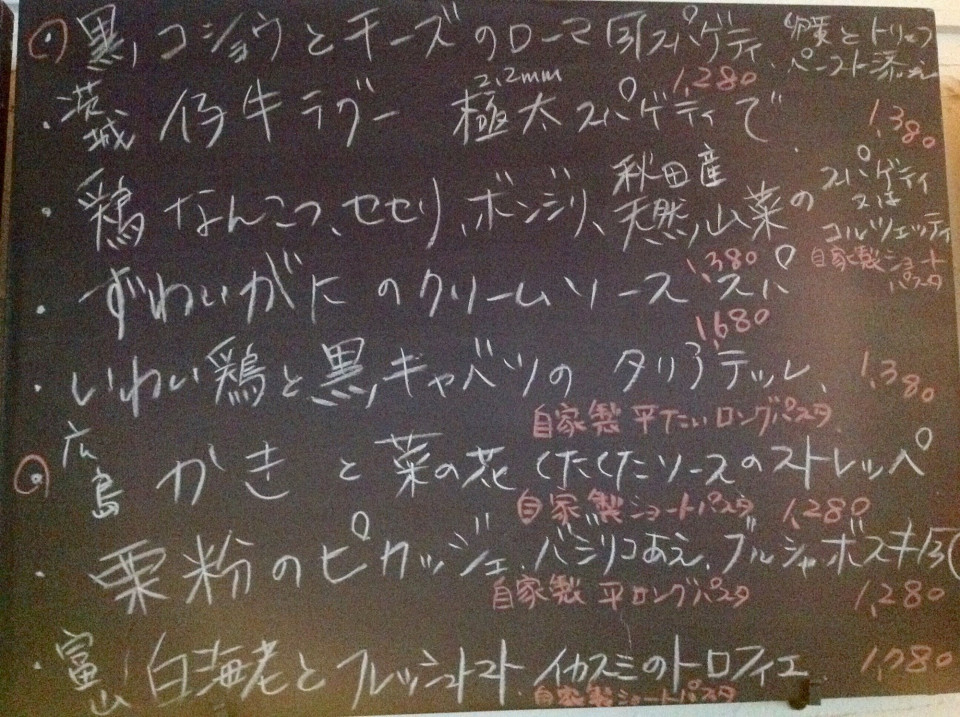 黒コショウとチーズのローマ風スパゲティ、卵黄とトリュフ
ペースト添え
1,280
・茨城 仔牛ラグー 極太スパゲティで
2,2mm
1,380
・鶏なんこつ、セセリ、ボンジリ、秋田産天然山菜の
スパゲティ
又は
コルツェッティ
自家製ショート
パスタ
1,380
・ずわいがにのクリームソース スパ
1,680
・いわい鶏と黒キャベツの タリアテッレ、
1,380
自家製 平たいロングパスタ
広島 かきと菜の花くたくたソースのストレッペ
自家製ショートパスタ 1,280
・栗粉のピカッジェ、バジリコあえ、ブルシャボスキ風
自家製 平ロングパスタ 1,280
・富山 白海老とフレッシュトマト イカスミのトロフィエ
自家製ショートパスタ